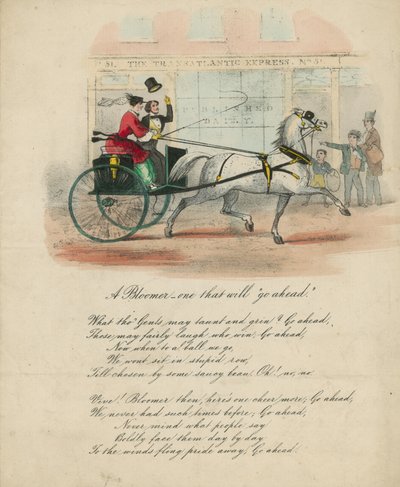 No. 51. THE TRANSATLANTIC EXPRESS. No. 51
PUBLISHED
DAILY.
A Bloomer_one that will "go ahead."
What tho' Gents, may taunt and grin? Go ahead;
Those may fairly laugh who win, Go ahead,
Now when to a ball we go,
We wont sit in stupid row,
Till chosen by some saucy beau. Oh! no, no
Vive! Bloomer then, here's one cheer more; Go ahead;
We never had such times before; Go ahead;
Never mind what people say
Boldly face them day by day
To the winds fling pride away, Go ahead.